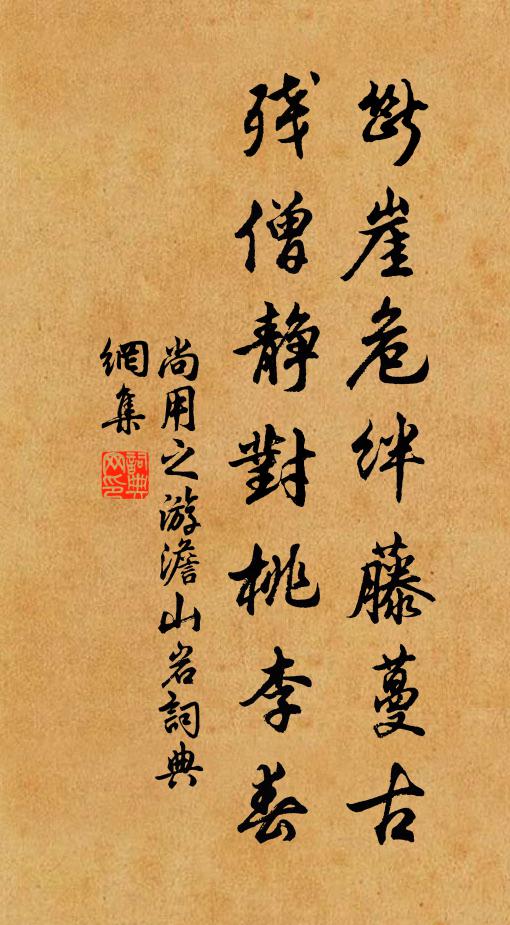 斷崖危絆藤蔓古
残僧靜對桃李春
尚用之游澹山岩詞典
網集
詞典
网印